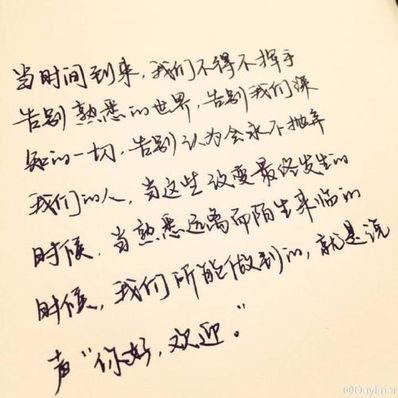 当时间到来，我们不得不挥手
告别熟悉的世界，告别我们深
知的一切，告别认为会永不抛弃
我们的人，当这些改变最终发生的
时候，当熟悉远离而陌生来临的
时候，我们所能做到的，就是说
声“你好，欢迎。”